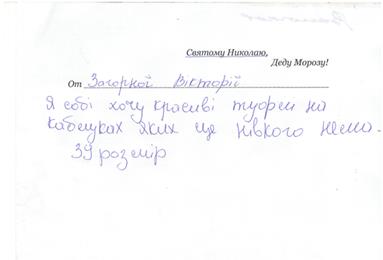 Святому Николаю,
Деду Морозу!
От Загорной Вікторії
Я собі хочу красиві туфли на
каблуках яких ще нівкого нема.
39 розмір